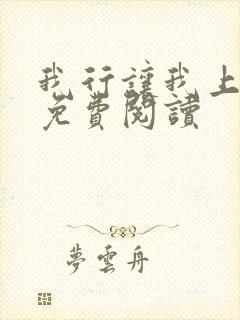 我行讓我上
免費閱讀
夢雲舟